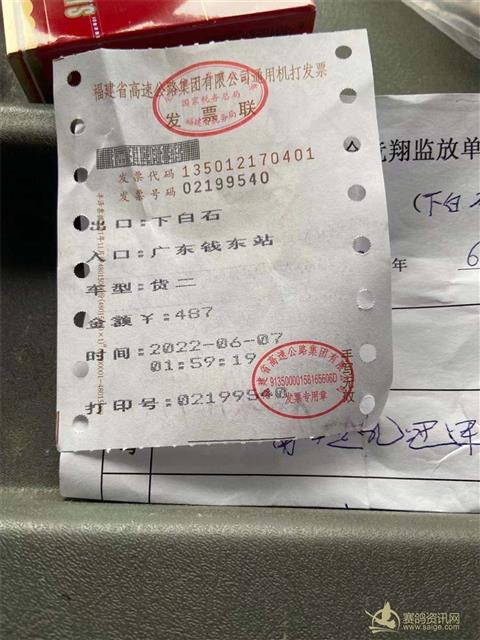 福建省高速公路集团有限公司通用机打发票
国家税务总局
发票联
福建省税务局
发票代码 135012170401
发票号码 02199540
出口:下白石
入口:广东钱东站
车型:货二
金额￥:487
时间:2022-06-07
01:59:19
打印号:02199540
福建省高速公路集团有限公司
91350000158165606D
发票专用章
手写无效
翔监放单
(下白石
年 6
赛鸽资讯网
www.saige.com